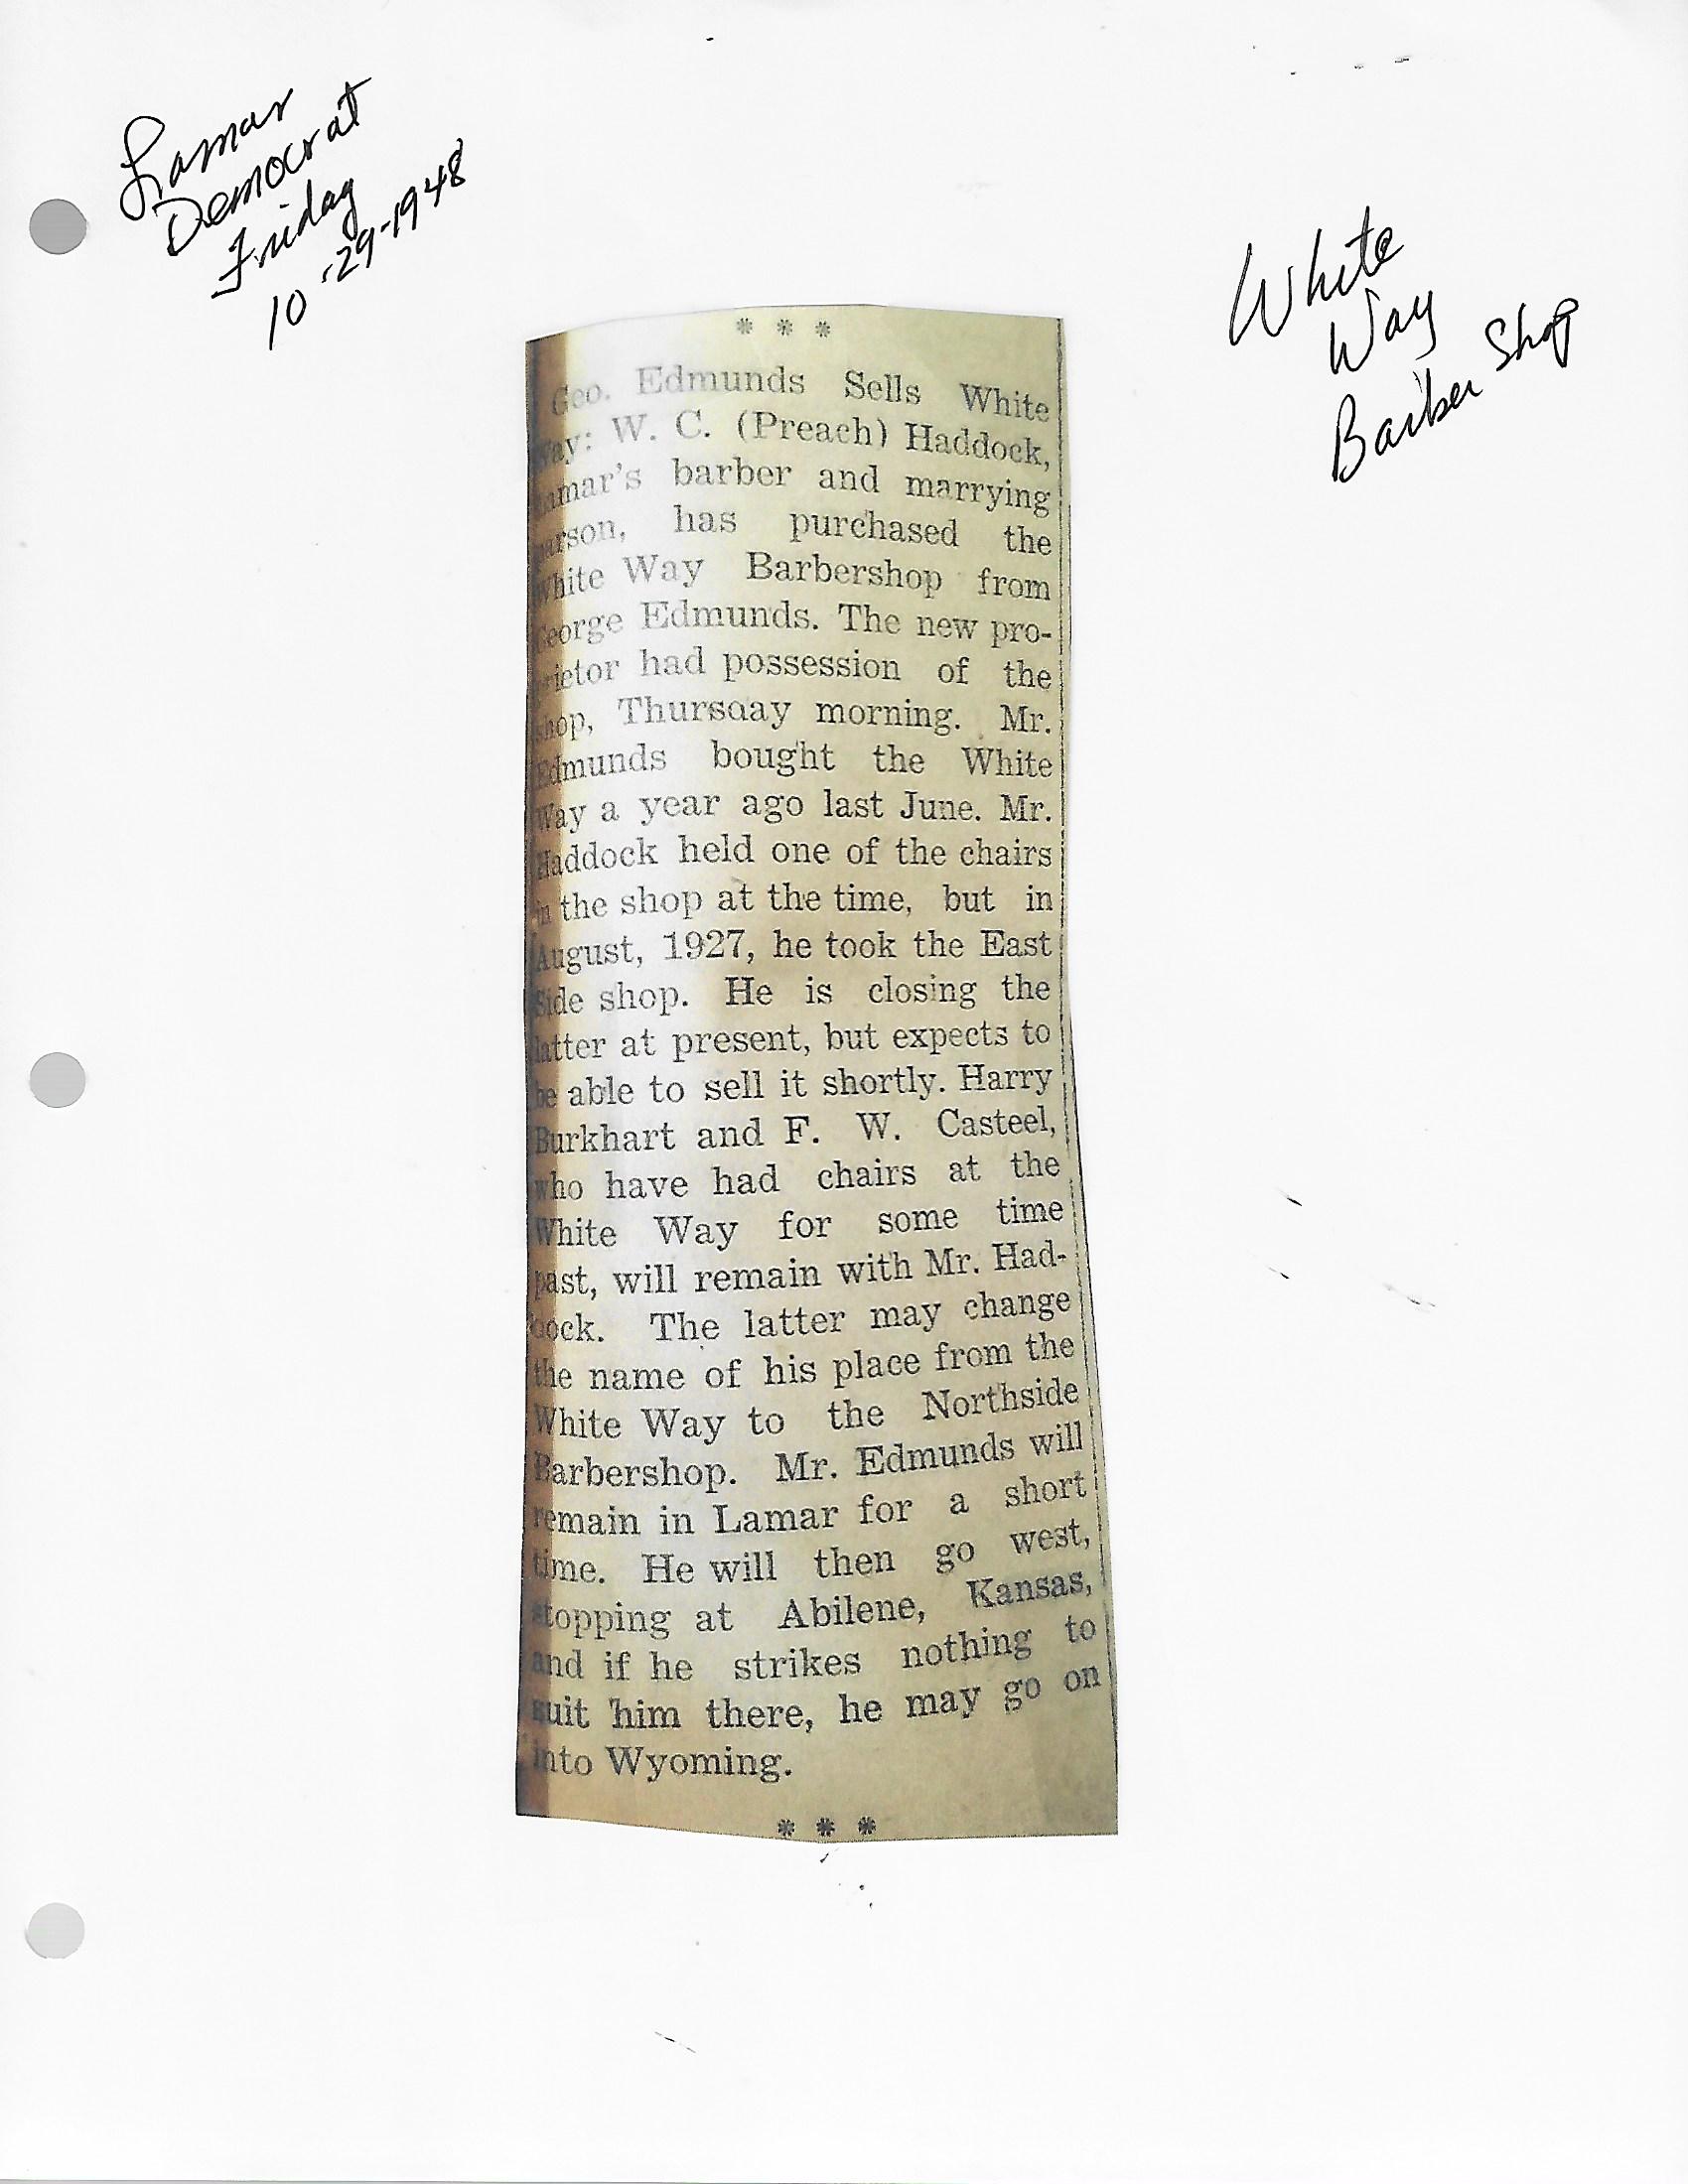 Lamar
Democrat
Friday
10-29-1948
White
Way
Barber Shop
* * *
Geo. Edmunds Sells White
Way: W. C. (Preach) Haddock,
Lamar's barber and marrying
parson, has purchased the
White Way Barbershop from
George Edmunds. The new pro-
prietor had possession of the
shop, Thursday morning. Mr.
Edmunds bought the White
Way a year ago last June. Mr.
Haddock held one of the chairs
in the shop at the time, but in
August, 1927, he took the East
Side shop. He is closing the
latter at present, but expects to
be able to sell it shortly. Harry
Burkhart and F. W. Casteel,
who have had chairs at the
White Way for some time
past, will remain with Mr. Had-
dock. The latter may change
the name of his place from the
White Way to the Northside
Barbershop. Mr. Edmunds will
remain in Lamar for a short
time. He will then go west,
stopping at Abilene, Kansas,
and if he strikes nothing to
suit him there, he may go on
into Wyoming.
* * *